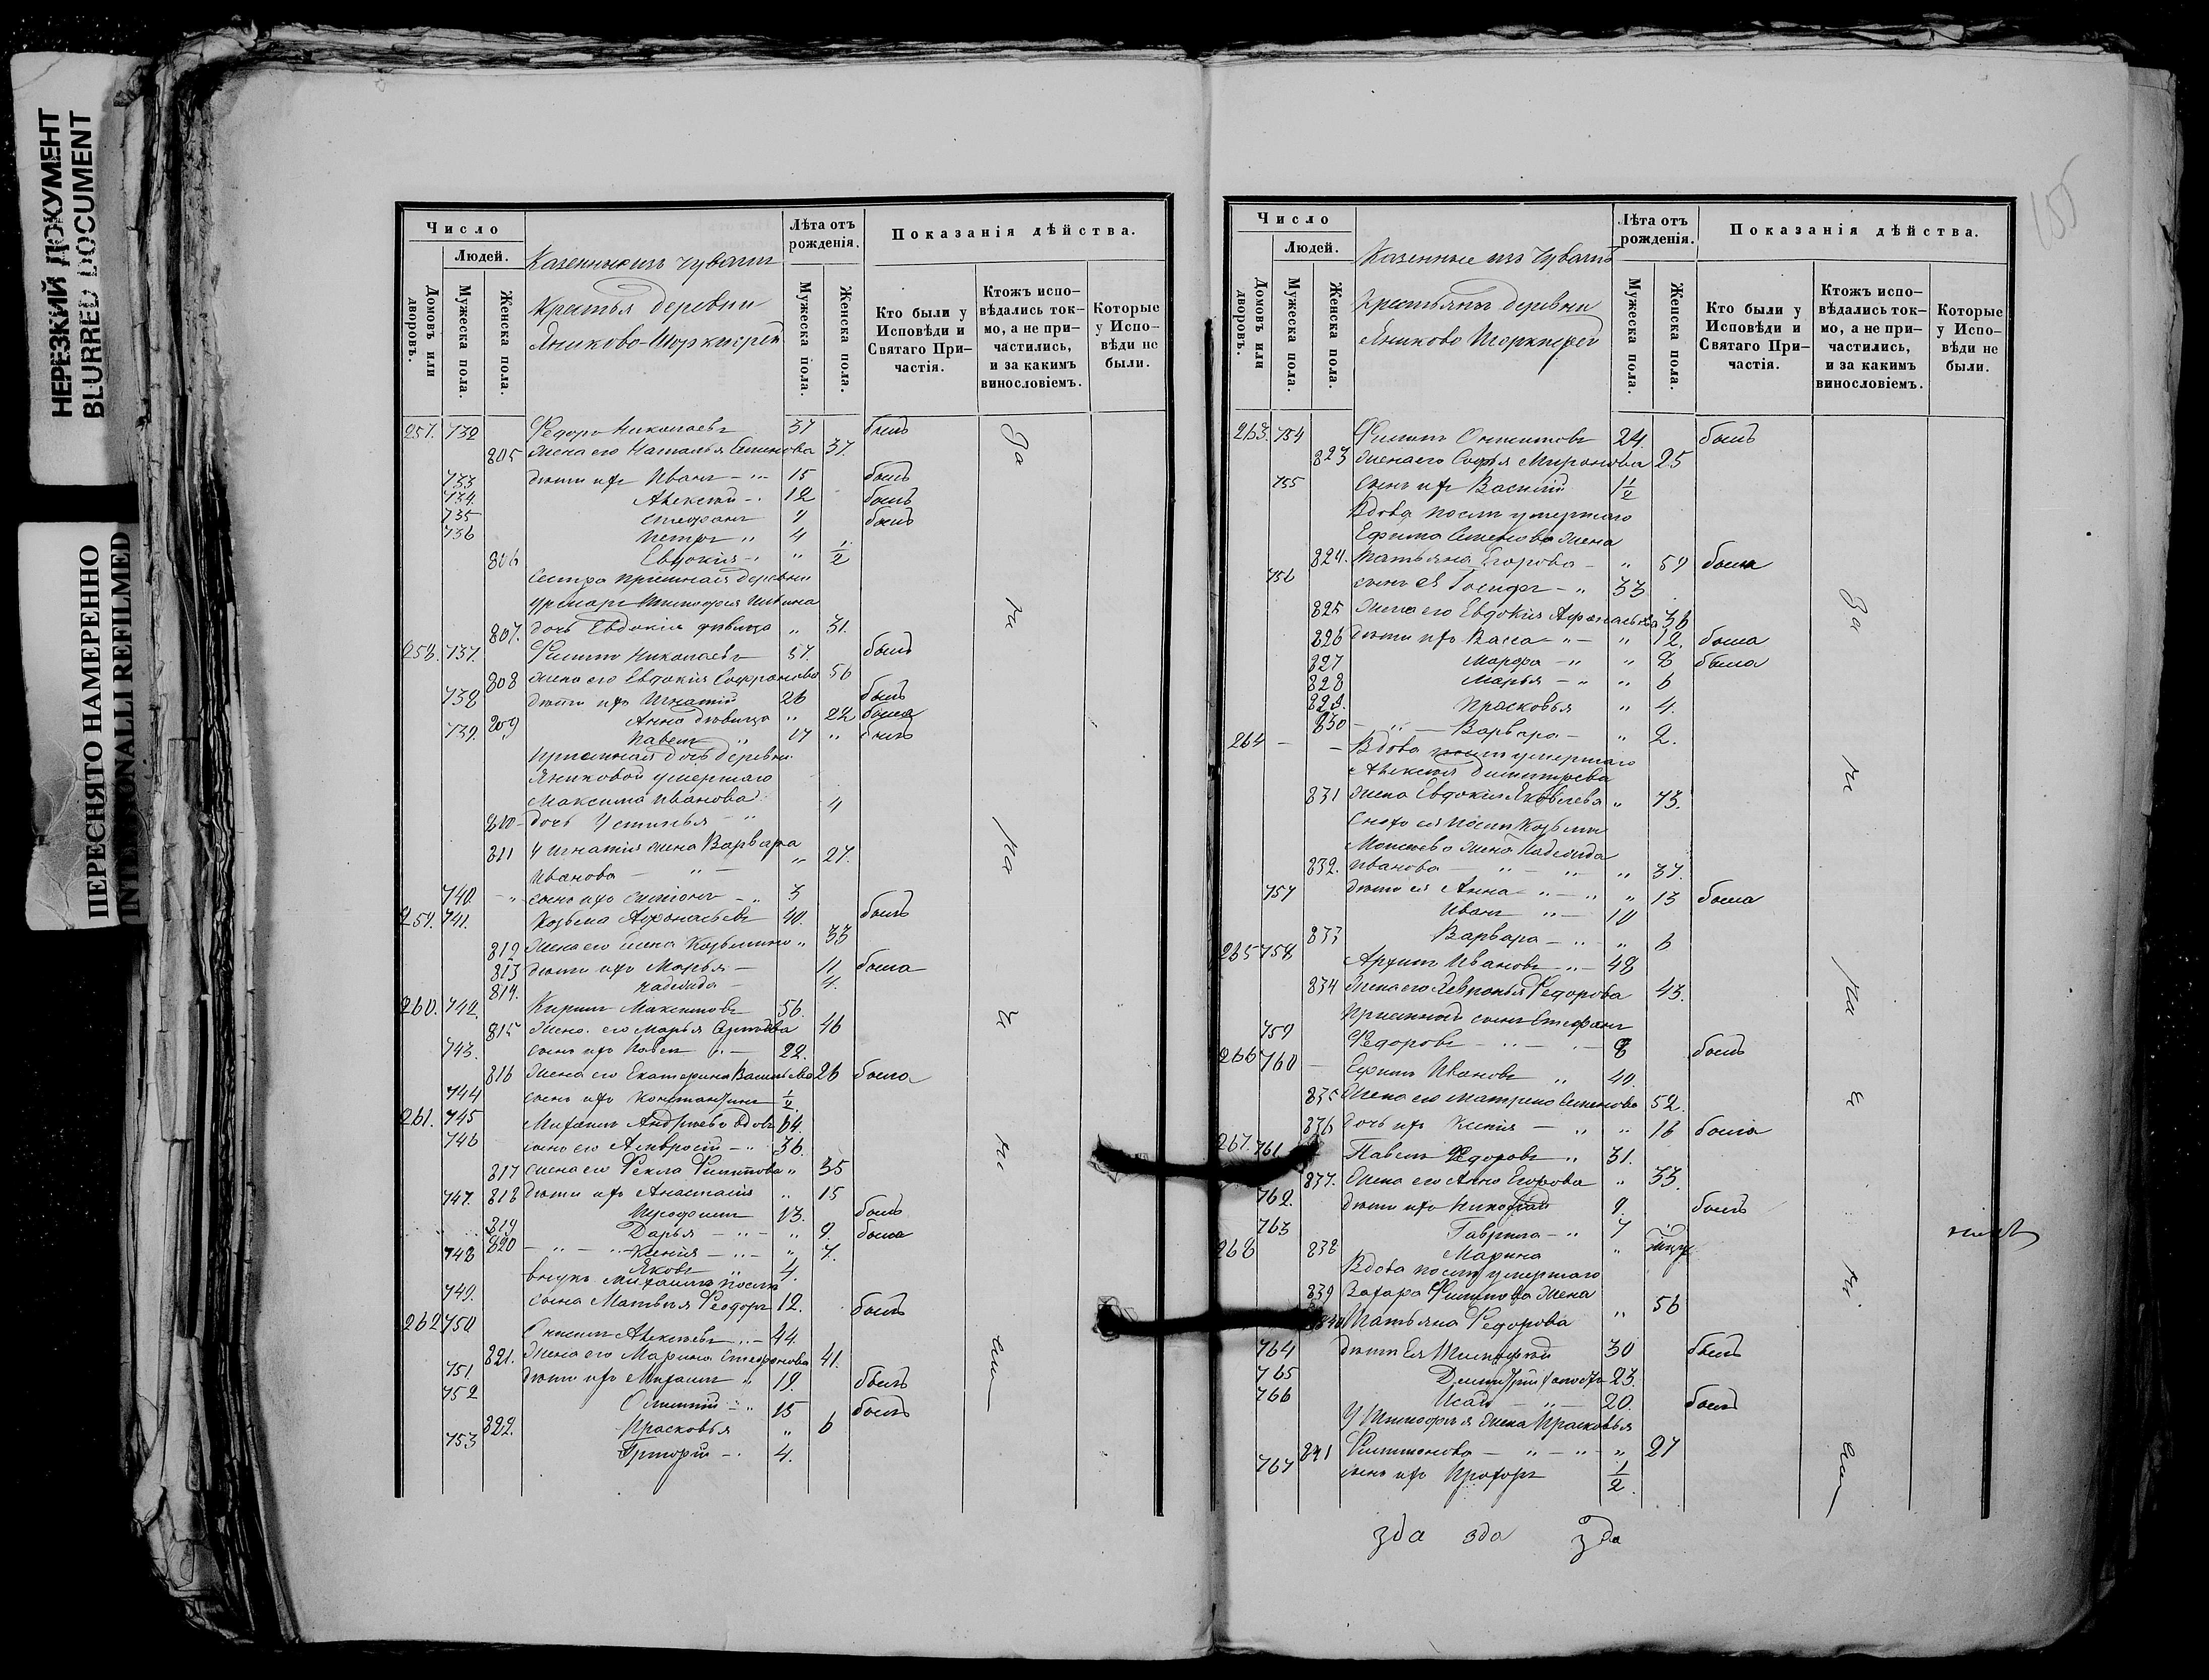 НЕРЕЗКИЙ ДОКУМЕНТ
BLURRED DOCUMENT
ПЕРЕСНЯТО НАМЕРЕННО
INTENTIONALLI REFILMED
Число
Людей.
Домовъ или дворовъ.
Мужеска пола.
Женска пола.
Казенные изъ чувашъ
деревни
Яниково-Шоркистры
Лѣта отъ рожденія.
Мужеска пола.
Женска пола.
Показанія дѣйства.
Кто были у Исповѣди и Святаго Причастія.
Ктожъ исповѣдались токмо, а не причастились, и за какимъ винословіемъ.
Которые у Исповѣди не были.
257. 732 Ѳедоръ Николаевъ 37 былъ
805 жена его Наталья Семенова 37.
733 дѣти ихъ Иванъ 15 былъ
734 Алексѣй 12 былъ
735 Стефанъ былъ
736 Петръ 4
806 Евдокія " 1/2
Сестра деревни
807. дочь Евдокія дѣвица " 31.
258. 737. Филиппъ Николаевъ 57. былъ
808 жена его Евдокія Софронова 56
738 дѣти ихъ Игнатій 26 былъ
809 Анна дѣвица " 22 была
739. Павелъ " 17 " былъ
дочь деревни
Яниковой умершаго
Максима Иванова
810 дочь Устинья 4
811 У Игнатія жена Варвара
Иванова " 27.
740. сынъ ихъ Симеонъ 3
259. 741. Козьма Афонасьевъ 40. былъ
812 жена его Елена Козьмина " 33
813 дѣти ихъ Марья 11 была
814. Надежда 4.
260. 742. Кирилъ Максимовъ 56.
815 жена его Марья 46
743. сынъ ихъ Павелъ 22.
816 жена его Екатерина Васильева 26 была
744 сынъ ихъ Константинъ 1/2.
261. 745 Михаилъ Андреевъ вдовъ 64.
746 сынъ его Амвросій 36.
817 жена его Ѳекла Филиппова " 35
747. 818 дѣти ихъ Анастасія " 15
13. былъ
819 Дарья " 9. была
820 Ксенія " 7.
748 Яковъ 4.
внукъ Михаила послѣ
749. сына Матвѣя Ѳеодоръ 12. былъ
262 750 Онисимъ Алексѣевъ 44.
821. жена его Марина Стефанова 41.
751. дѣти ихъ Михаилъ 19. былъ
752 15 былъ
822. Прасковья " 6
753 Григорій 4.
За ни ма е мы ми
155
Число
Людей.
Домовъ или дворовъ.
Мужеска пола.
Женска пола.
Казенные изъ чувашъ
крестьянъ деревни
Яниково Шоркистры
Лѣта отъ рожденія.
Мужеска пола.
Женска пола.
Показанія дѣйства.
Кто были у Исповѣди и Святаго Причастія.
Ктожъ исповѣдались токмо, а не причастились, и за какимъ винословіемъ.
Которые у Исповѣди не были.
263. 754 Филиппъ Онисимовъ 24 былъ
823 жена его Софья Миронова 25
755 сынъ ихъ Василій 1 1/2
Вдова послѣ умершаго
Ефима Семенова жена
824. Татьяна Егорова " 59 была
756 сынъ ея Іосифъ " 33
825 жена его Евдокія Афонасьева 36
826 дѣти ихъ Васса " 12. была
827 Марфа " 8 была
828 Марья " 6
829. Прасковья " 4.
830 Варвара " 2.
264 Вдова послѣ умершаго
Алексѣя Димитріева
831 жена Евдокія Яковлева " 73.
Сноха ея послѣ Козьмы
Моисеева жена Надежда
832. Иванова " 37.
дѣти ея Анна " 13 была
757 Иванъ 10
833 Варвара " 6
265 758 Архипъ Иванов 48
834 жена его Ѳедорова 43.
сынъ Стефанъ
759 Ѳедоровъ 8 былъ
266 760 Ефимъ Ивановъ " 40.
835 жена его Матрена Семенова 52.
836 дочь ихъ Ксенія " 16 была
267. 761 Павелъ Ѳедоровъ " 31.
837. жена его Анна Егорова " 33.
762. дѣти ихъ Николай 9. былъ
763 Гаврила 7
838 Марина "
268 Вдова послѣ умершаго
839 Захара Филиппова жена
840 Татьяна Ѳедорова " 56
764 дѣти ея Тимофей 30 былъ
765 Дмитрій холостъ 23.
766 Исай 20. былъ
У Тимофея жена Прасковья
841 Филимонова " 27
767 сынъ ихъ Прохоръ 1/2
За ни ма е мы ми
зда зда зда